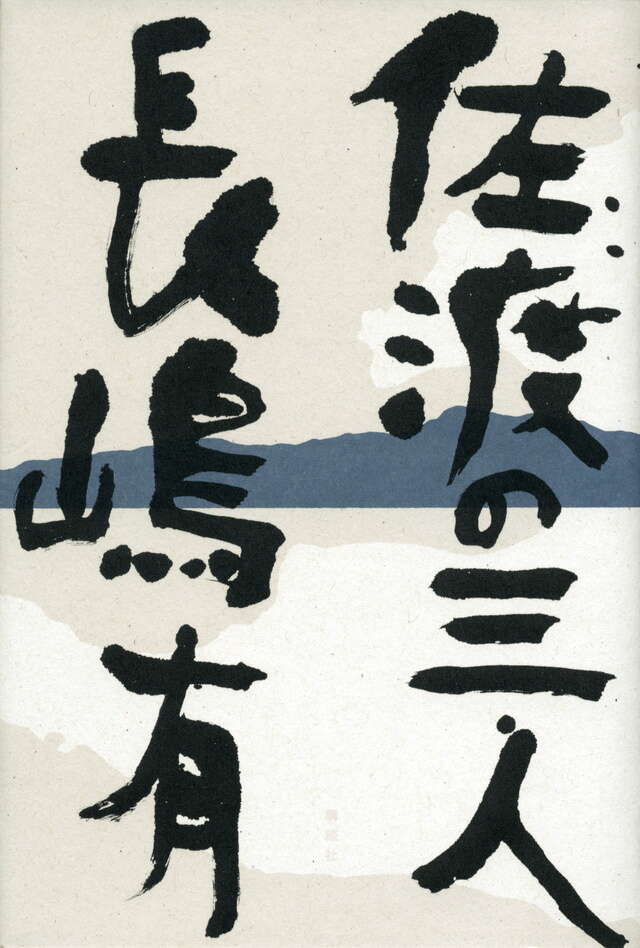 佐渡の三人
長嶋有
講談社